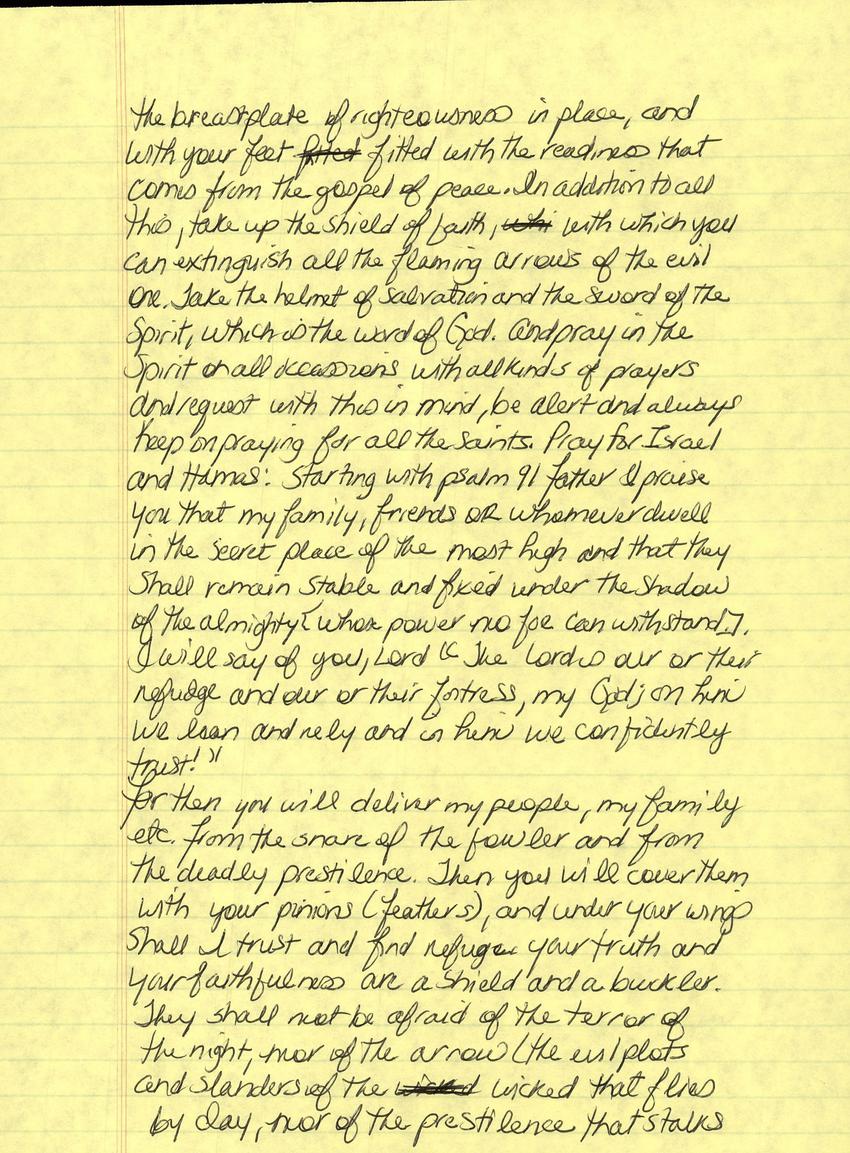 the breastplate of righteousness in place, and
with your feet fitted fitted with the readiness that
comes from the gospel of peace. In addition to all
this, take up the shield of faith, whi with which you
can extinguish all the flaming arrows of the evil
one. Take the helmet of salvation and the sword of the
Spirit, which is the word of God. And pray in the
Spirit on all occassions with all kinds of prayers
and request with this in mind, be alert and always
keep on praying for all the saints. Pray for Israel
and Hamas: Starting with psalm 91 father I praise
you that my family, friends OR whomever dwell
in the secret place of the most high and that they
shall remain stable and fixed under the shadow
of the almighty [whose power no foe can withstand.].
I will say of you, Lord "The Lord is our or their
refudge and our or their fortress, my God; on him
we lean and rely and in him we confidently
trust!"
for then you will deliver my people, my family
etc. from the snare of the fowler and from
the deadly prestilence. Then you will cover them
with your pinions (feathers), and under your wings
shall I trust and find refuge your truth and
your faithfulness are a shield and a buckler.
They shall not be afraid of the terror of
the night, nor of the arrow (the evil plots
and slanders of the wicked wicked that flies
by day, nor of the prestilence that stalks